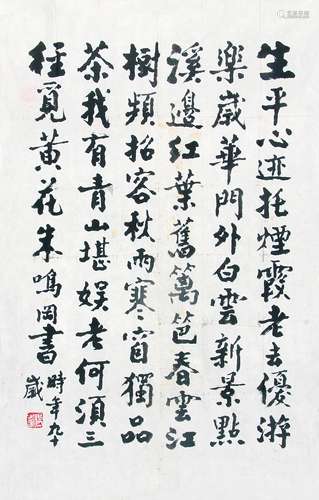 生平心迹托煙霞老去優游
樂歲華門外白雲新景點
溪邊紅葉舊篱笆春雲江
樹頻招客秋雨寒窗獨品
茶我有青山堪娱老何須三
徑覓黃花朱鳴岡書
時年九十
歲